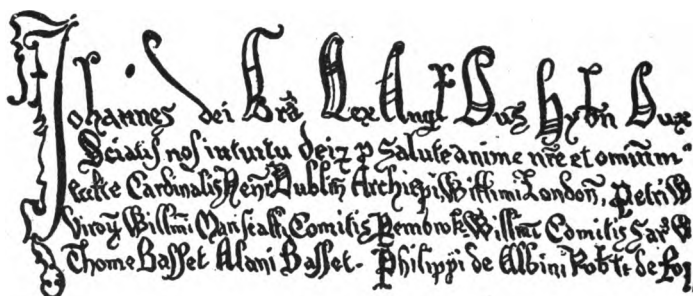 Johannes dei Grā Rex Angł Dns Hybn Dux
Sciatis nos intuitu dei & p salute anime nr̄e et omnium
Cardinalis Henr̄ Dublin̄ Archiepi, Willimi London, Petri W
Viroꝝ Willmi Marescalli Comitis Pembrok Willmi Comitis Sar W
Thome Basset Alani Basset. Philippi de Albini Robti de Ro